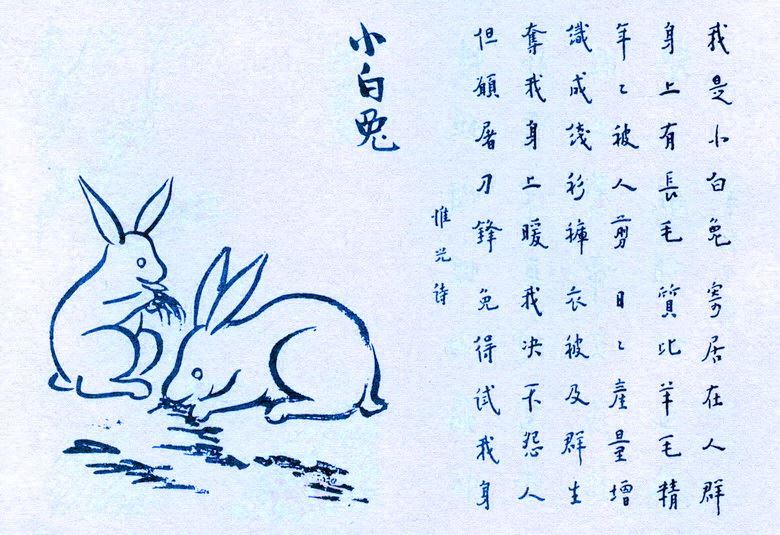 我是小白兔寄居在人群
身上有長毛質比羊毛精
年〻被人剪日〻產量增
織成綫衫褲衣被及群生
奪我身上暖我决不怨人
但願屠刀鋒免得試我身
惟光诗
小白兔